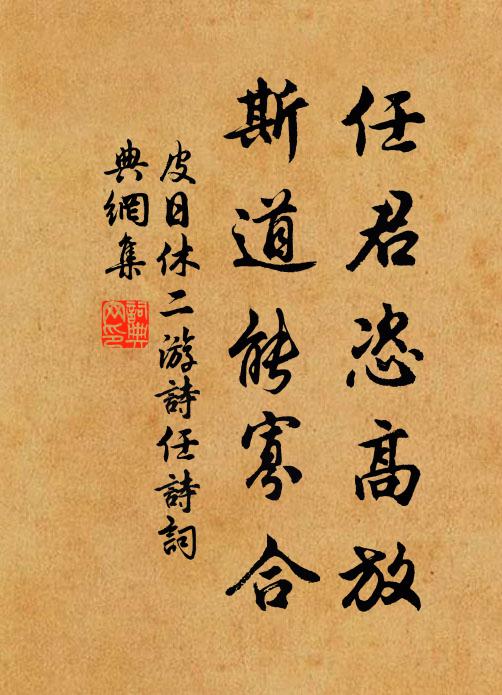 任君恣高放
斯道能寡合
皮日休二游詩任詩詞
典網集
詞典
网印